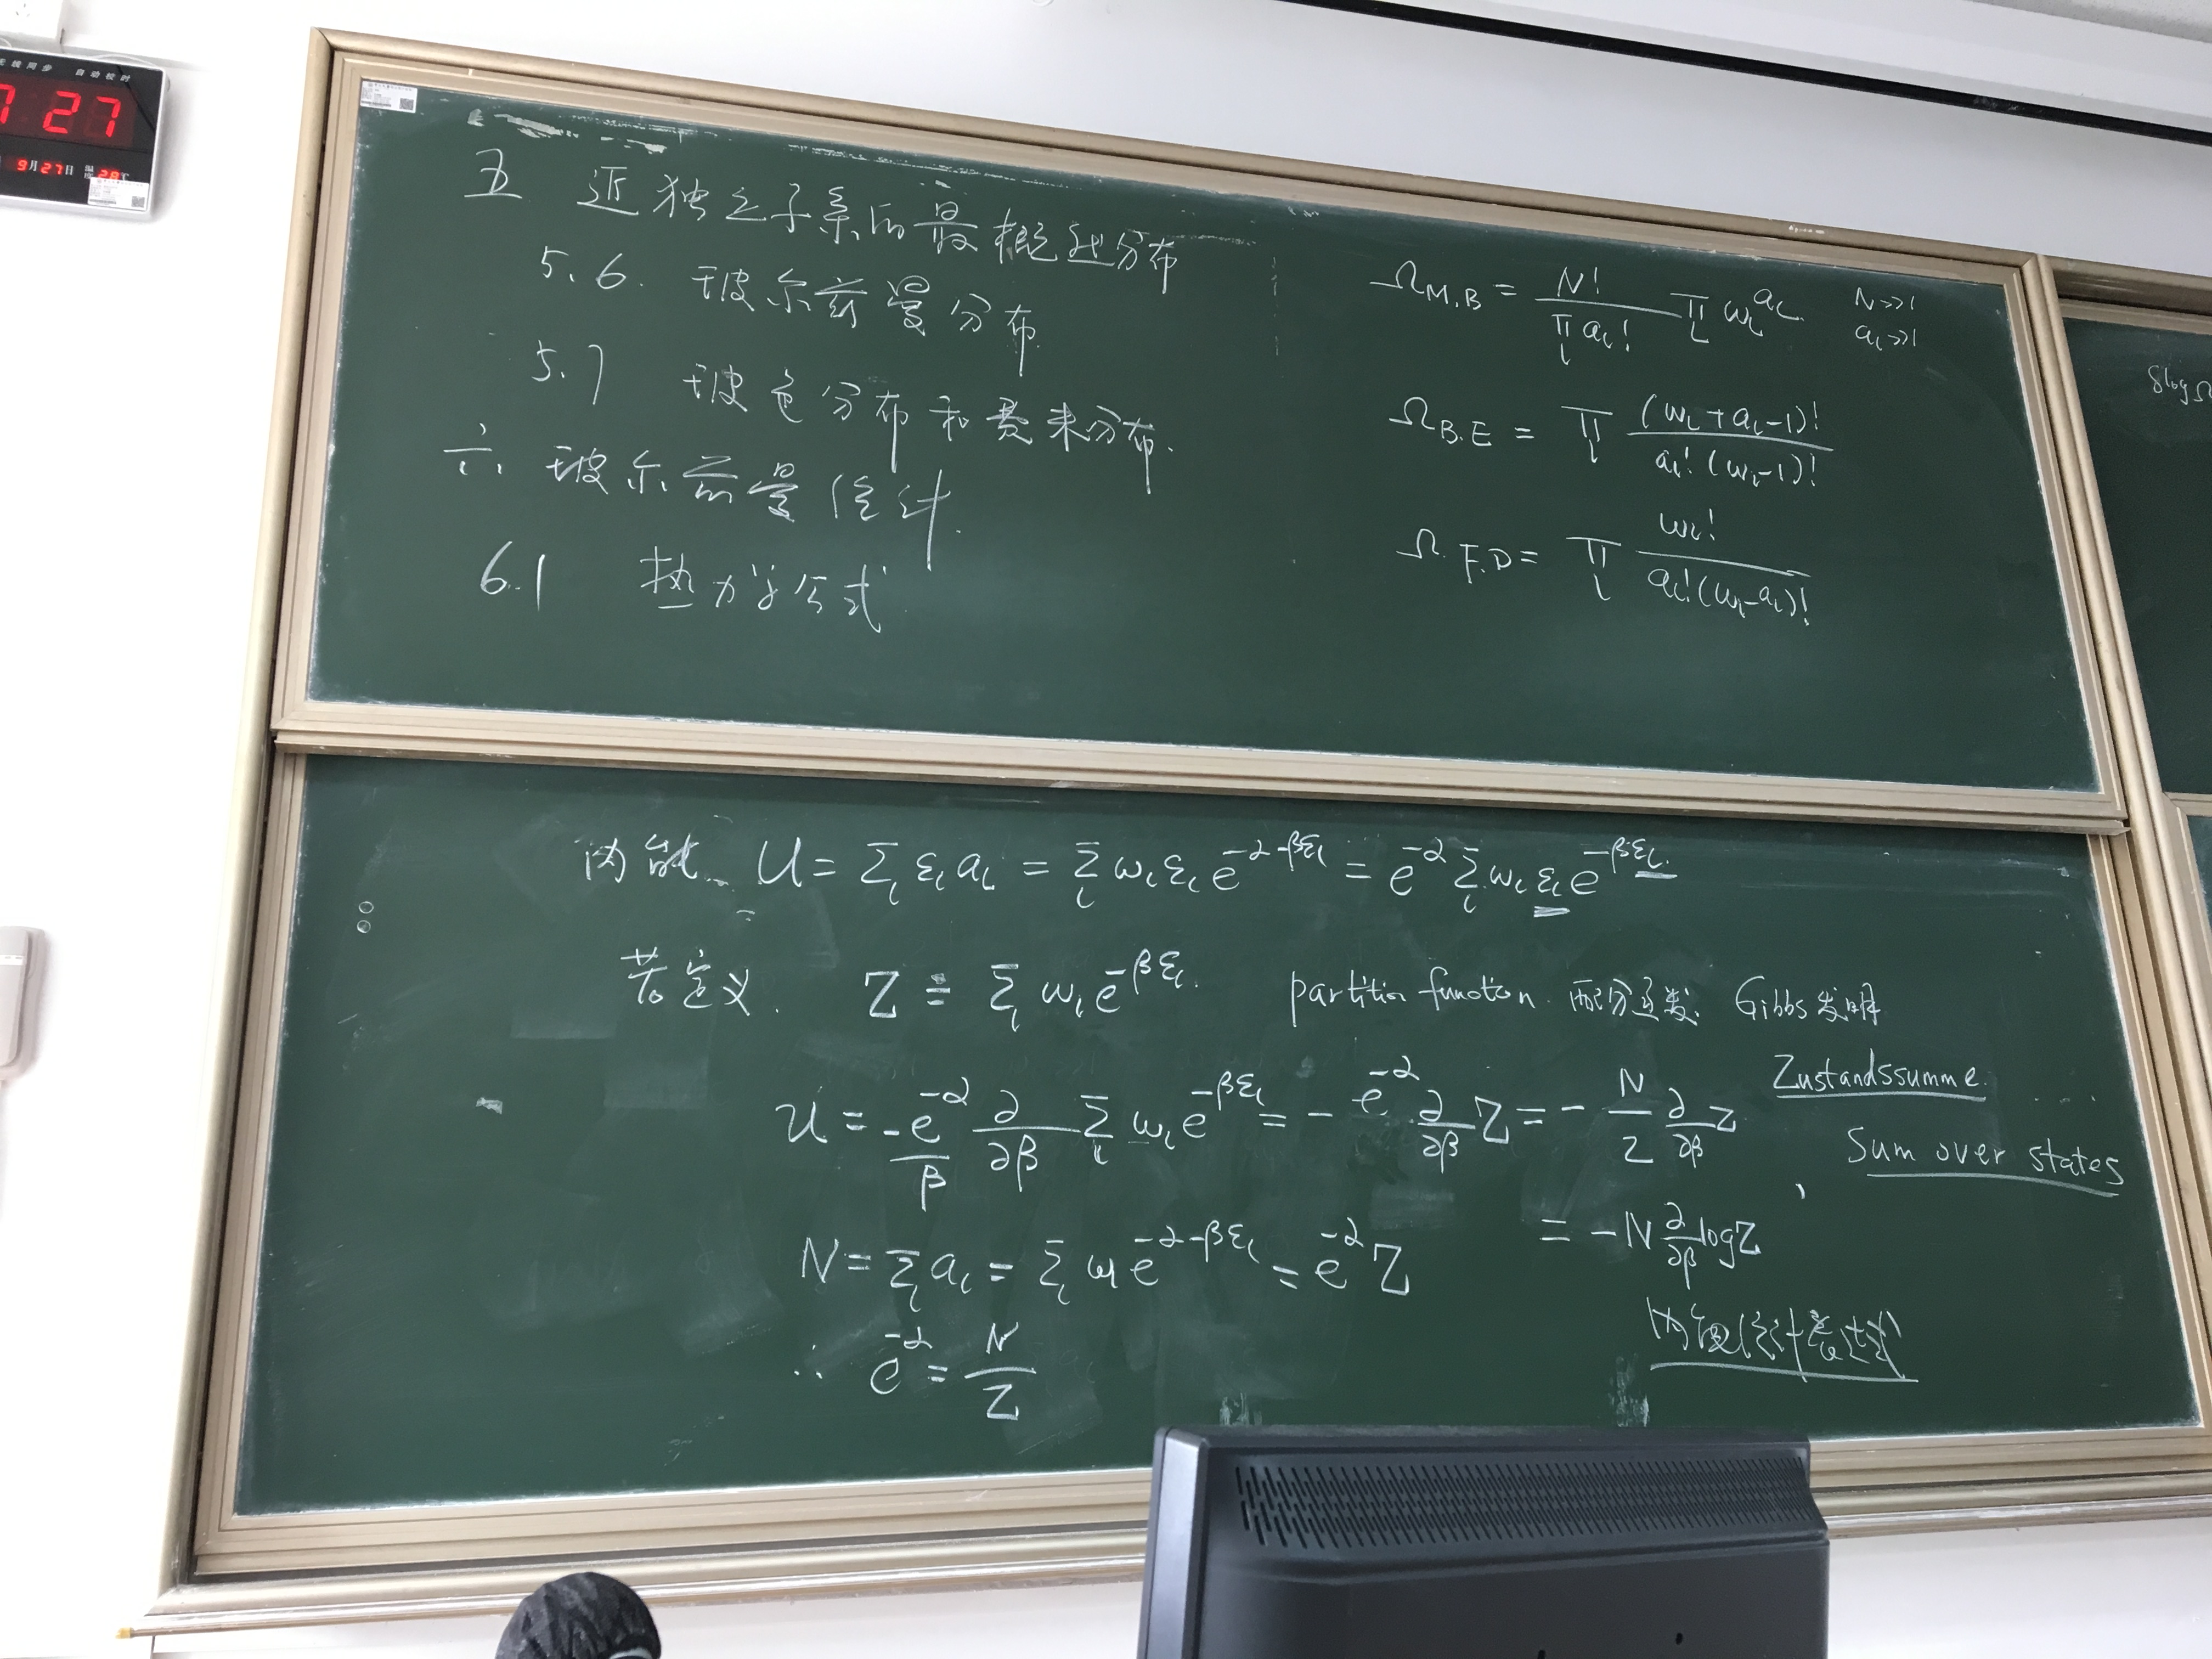 无线同步 自动校时
7 27
9月27日 温度 28℃
五 近独立子系的最概然分布
5.6. 玻尔兹曼分布
5.7 玻色分布和费米分布.
六、玻尔兹曼统计.
6.1 热力学公式
Ω_{M.B} = \frac{N!}{∏_l a_l!} ∏_l ω_l^{a_l} N>>1 a_l>>1
Ω_{B.E} = ∏_l \frac{(ω_l+a_l-1)!}{a_l!(ω_l-1)!}
Ω_{F.D} = ∏_l \frac{ω_l!}{a_l!(ω_l-a_l)!}
δlogΩ
内能 U = Σ_l ε_l a_l = Σ_l ω_l ε_l e^{-α-βε_l} = e^{-α} Σ_l ω_l ε_l e^{-βε_l}
若定义. Z ≡ Σ_l ω_l e^{-βε_l}. partition function. 配分函数. Gibbs发明
Zustandssumme.
U = -\frac{e^{-α}}{β} \frac{∂}{∂β} Σ_l ω_l e^{-βε_l} = - e^{-α} \frac{∂}{∂β} Z = - \frac{N}{Z} \frac{∂}{∂β} Z
Sum over states
= -N \frac{∂}{∂β} log Z
N = Σ_l a_l = Σ_l ω_l e^{-α-βε_l} = e^{-α} Z
内能统计表达式
∴ e^{-α} = \frac{N}{Z}